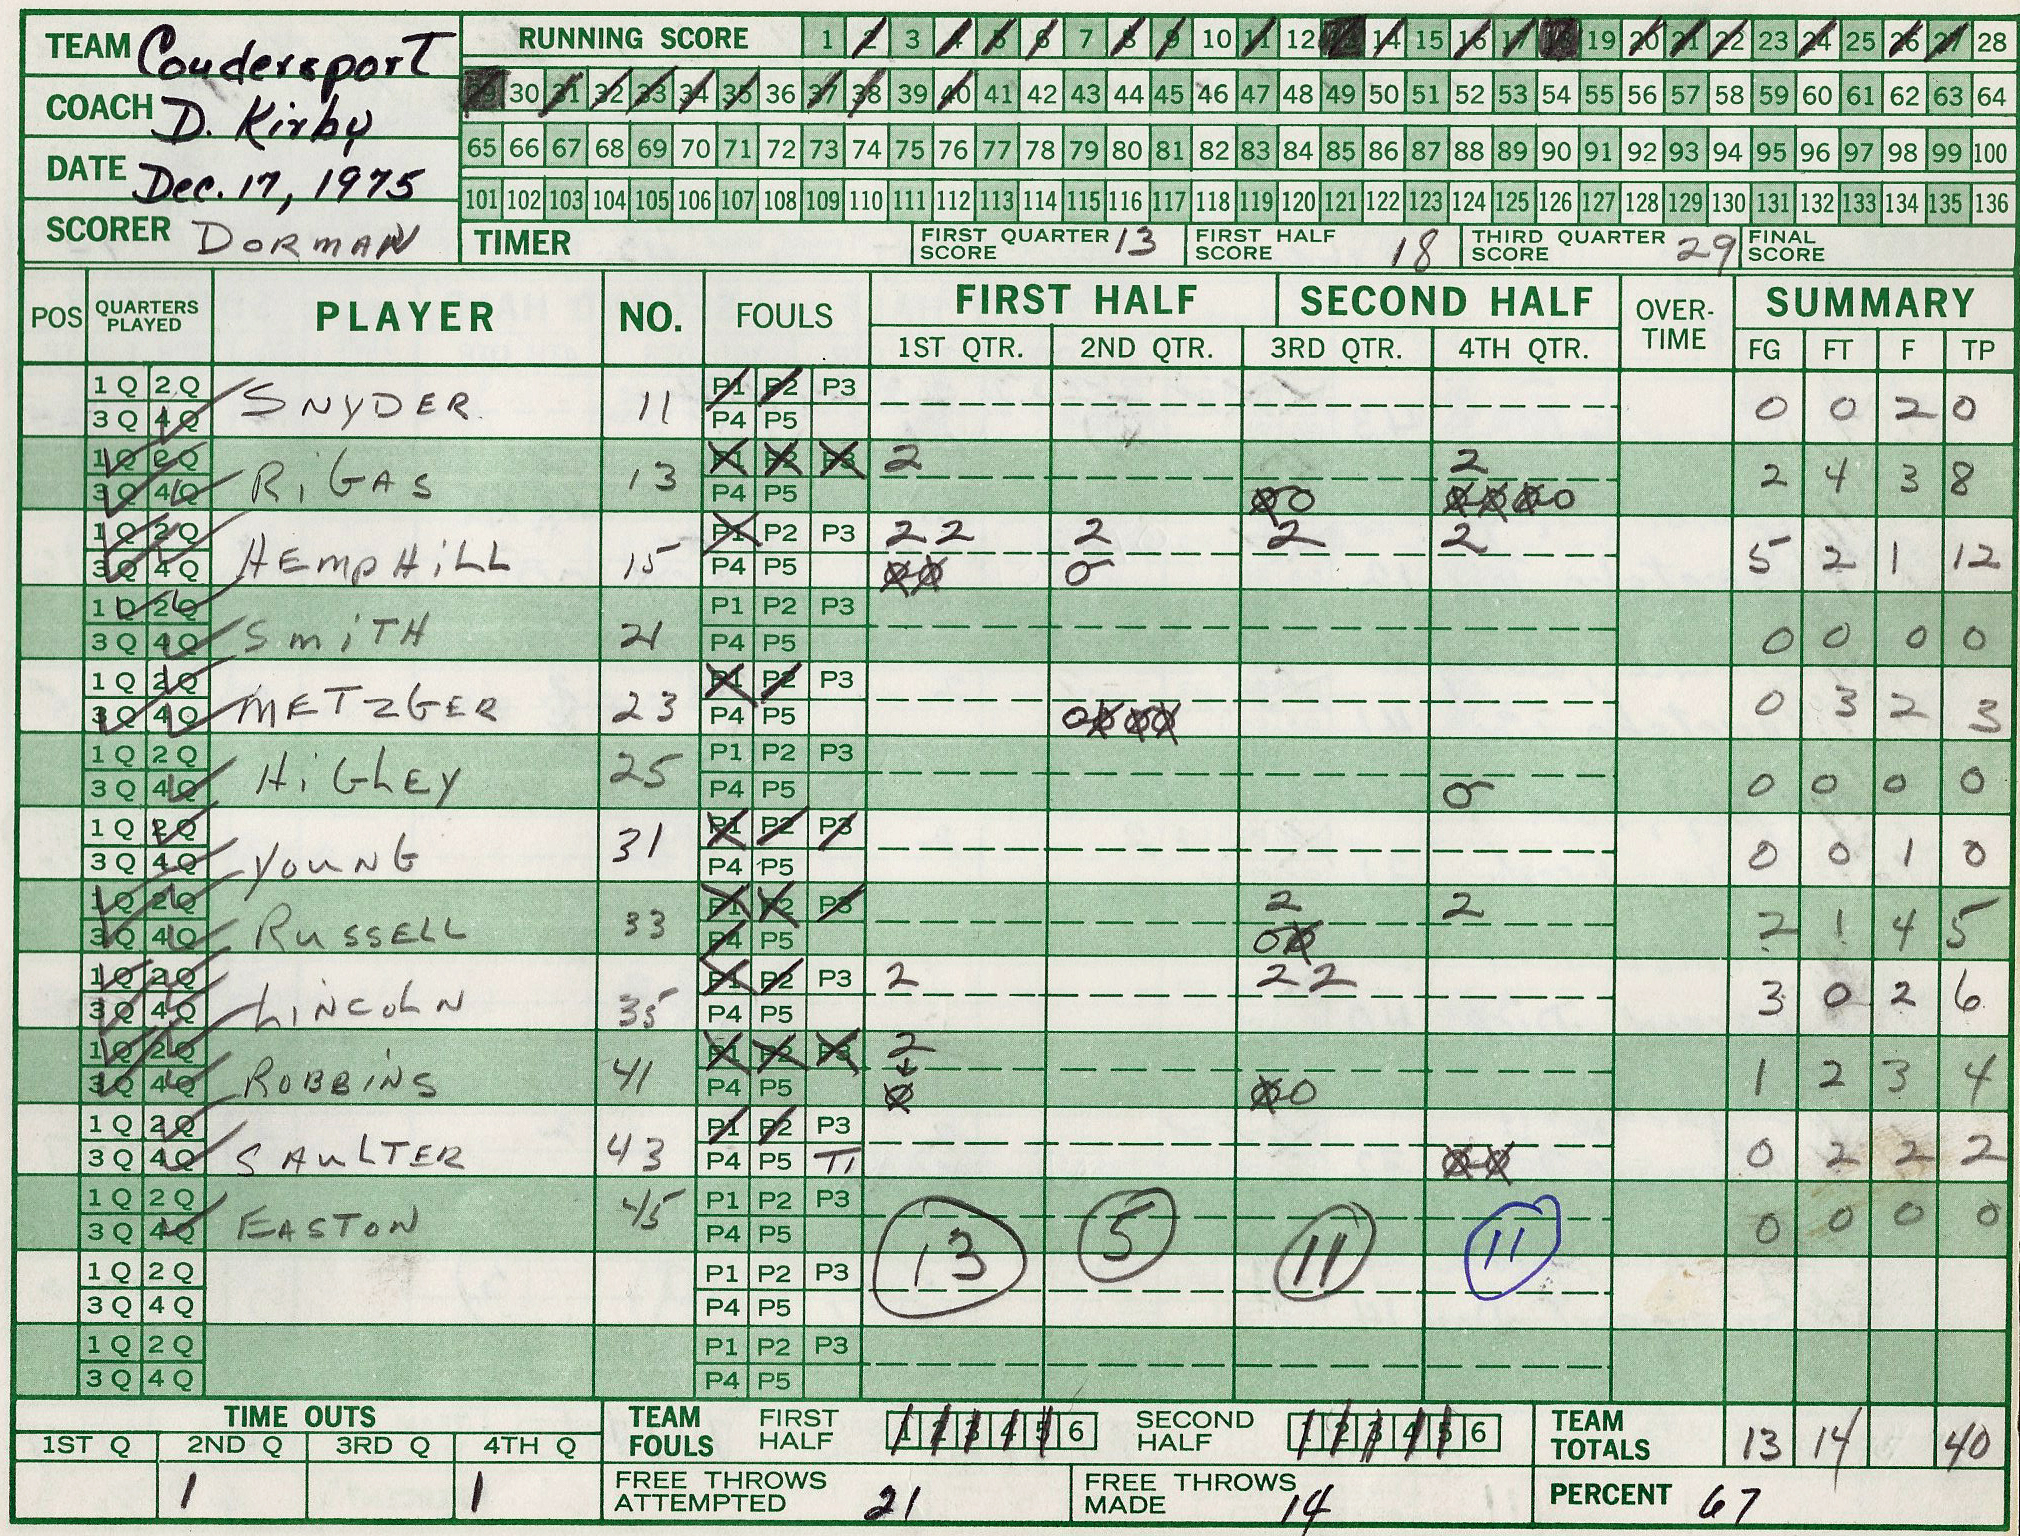 TEAM Coudersport
COACH D. Kirby
DATE Dec. 17, 1975
SCORER DORMAN
RUNNING SCORE 1 2 3 4 5 6 7 8 9 10 11 12 13 14 15 16 17 18 19 20 21 22 23 24 25 26 27 28
29 30 31 32 33 34 35 36 37 38 39 40 41 42 43 44 45 46 47 48 49 50 51 52 53 54 55 56 57 58 59 60 61 62 63 64
65 66 67 68 69 70 71 72 73 74 75 76 77 78 79 80 81 82 83 84 85 86 87 88 89 90 91 92 93 94 95 96 97 98 99 100
101 102 103 104 105 106 107 108 109 110 111 112 113 114 115 116 117 118 119 120 121 122 123 124 125 126 127 128 129 130 131 132 133 134 135 136
TIMER FIRST QUARTER SCORE 13 FIRST HALF SCORE 18 THIRD QUARTER SCORE 29 FINAL SCORE
POS QUARTERS PLAYED PLAYER NO. FOULS FIRST HALF SECOND HALF OVER-TIME SUMMARY
1ST QTR. 2ND QTR. 3RD QTR. 4TH QTR. FG FT F TP
1Q 2Q P1 P2 P3
3Q 4Q SNYDER 11 P4 P5 0 0 2 0
1Q 2Q P1 P2 P3 2 2
3Q 4Q RiGAS 13 P4 P5 0 0 0 0 0 0 2 4 3 8
1Q 2Q P1 P2 P3 2 2 2 2 2
3Q 4Q HEmpHiLL 15 P4 P5 0 0 0 5 2 1 12
1Q 2Q P1 P2 P3
3Q 4Q SmiTH 21 P4 P5 0 0 0 0
1Q 2Q P1 P2 P3
3Q 4Q METZGER 23 P4 P5 0 0 0 0 0 3 2 3
1Q 2Q P1 P2 P3
3Q 4Q HiGLEY 25 P4 P5 0 0 0 0 0
1Q 2Q P1 P2 P3
3Q 4Q YOUNG 31 P4 P5 0 0 1 0
1Q 2Q P1 P2 P3 2 2
3Q 4Q RUSSELL 33 P4 P5 0 0 2 1 4 5
1Q 2Q P1 P2 P3 2 2 2
3Q 4Q LiNCOLN 35 P4 P5 3 0 2 6
1Q 2Q P1 P2 P3 2
3Q 4Q ROBBiNS 41 P4 P5 0 0 0 1 2 3 4
1Q 2Q P1 P2 P3
3Q 4Q SAULTER 43 P4 P5 T1 0 0 0 2 2 2
1Q 2Q P1 P2 P3
3Q 4Q EASTON 45 P4 P5 0 0 0 0
13 5 11 11
1Q 2Q P1 P2 P3
3Q 4Q P4 P5
1Q 2Q P1 P2 P3
3Q 4Q P4 P5
TIME OUTS
1ST Q 2ND Q 3RD Q 4TH Q
1 1
TEAM FOULS FIRST HALF 1 2 3 4 5 6 SECOND HALF 1 2 3 4 5 6
TEAM TOTALS 13 14 40
FREE THROWS ATTEMPTED 21 FREE THROWS MADE 14 PERCENT 67